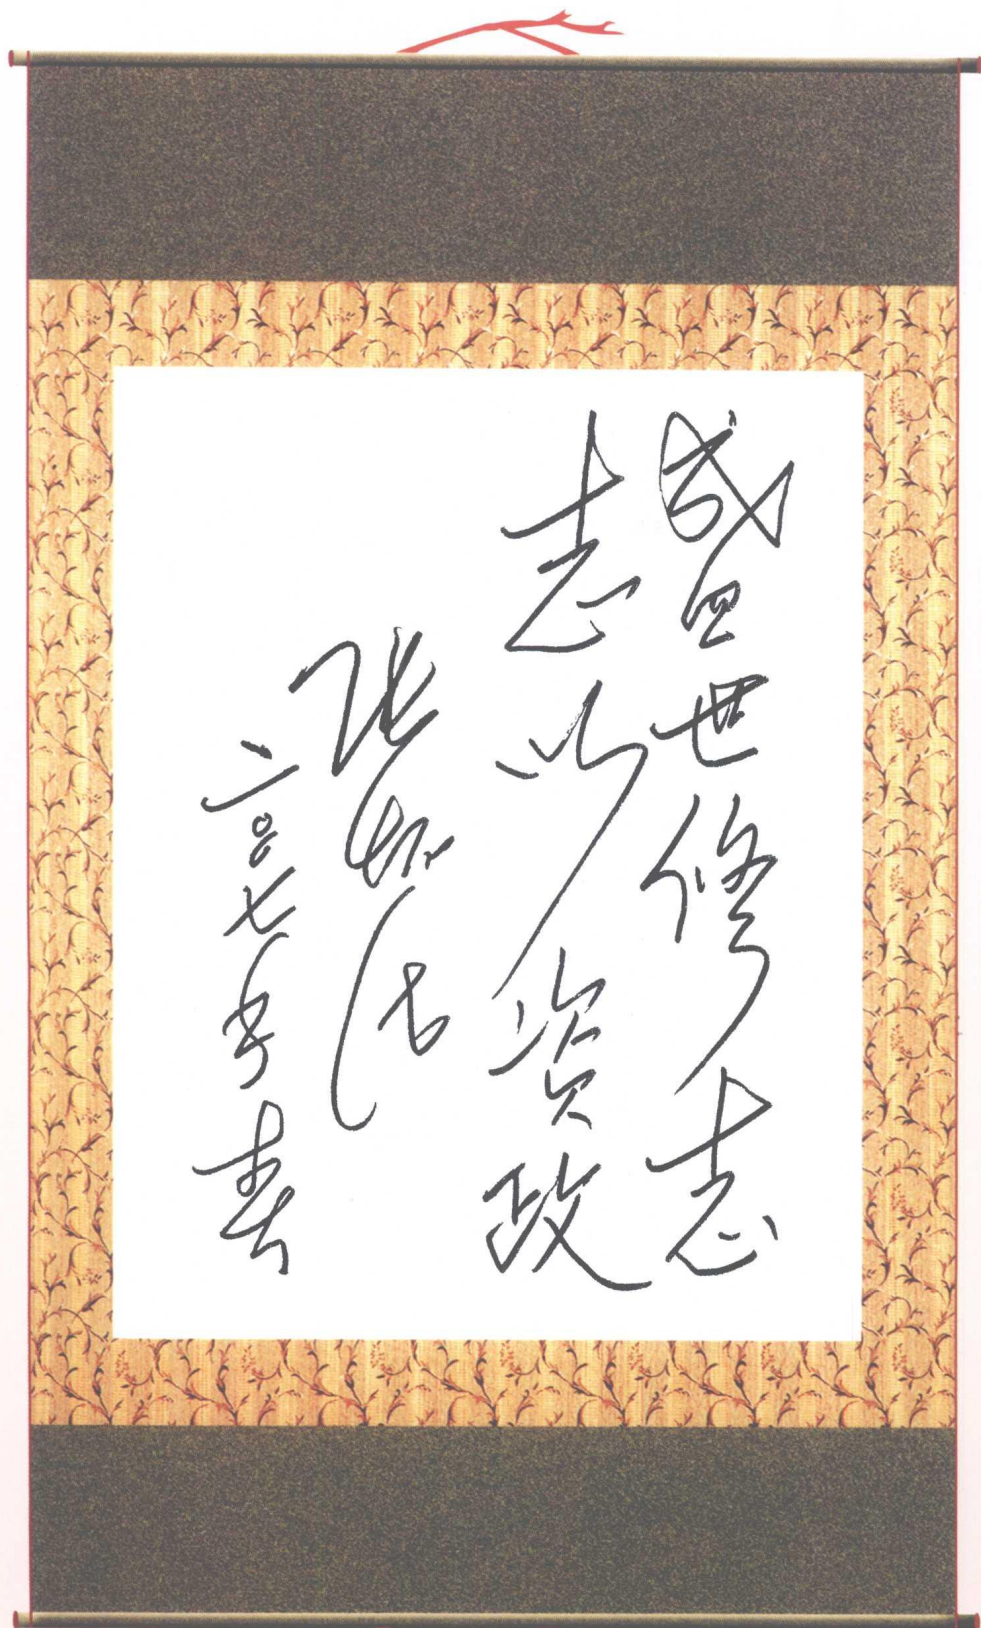 盛世修志
志以资政
二〇〇七年春